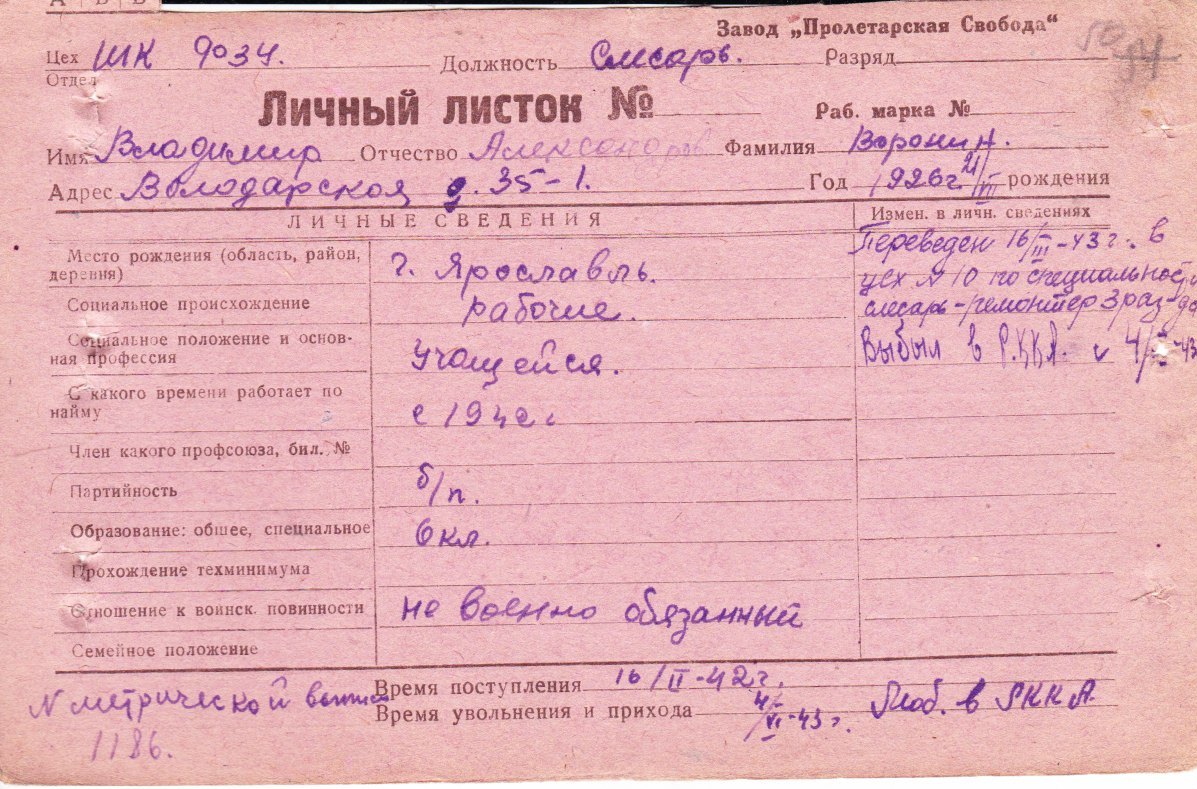 А Б В
Завод „Пролетарская Свобода“
Цех ШК 9034. Должность Слесарь. Разряд
Отдел
Личный листок № Раб. марка №
Имя Владимир Отчество Александров Фамилия Воронин.
Адрес Володарская д. 35-1. Год 1926г рождения
ЛИЧНЫЕ СВЕДЕНИЯ Измен. в личн. сведениях
Место рождения (область, район, деревня) г. Ярославль.
Социальное происхождение рабочие.
Социальное положение и основ-
ная профессия Учащейся.
С какого времени работает по
найму с 1942г
Член какого профсоюза, бил. №
Партийность б/п.
Образование: общее, специальное 6кл.
Прохождение техминимума
Отношение к воинск. повинности не военно обязанный
Семейное положение
Переведен 16/III-43г. в
цех №10 по специальности
слесарь-ремонтер 3 раз-да
Выбыл в Р.К.К.А. с 4/-43
Время поступления 16/II-42г.
Время увольнения и прихода 4/VI-43г. Моб. в РККА
N метрической выписи
1186.